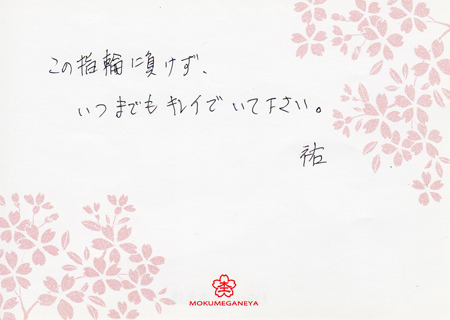 この指輪に負けず、
いつまでもキレイでいて下さい。
祐
MOKUMEGANEYA